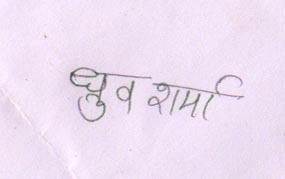 ध्रुव शर्मा